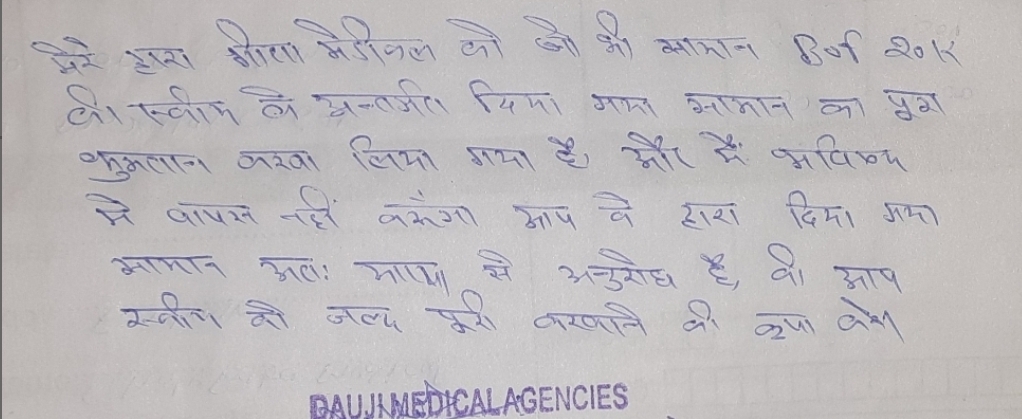 मेरे द्वारा गीता मेडीकल को जो भी सामान Bof 20K
की स्कीम के अन्तर्गत दिया गया सामान का पूरा
भुगतान करवा लिया गया है, और मैं भविष्य
मे वापस नहीं करूंगा आप के द्वारा दिया गया
सामान अतः आप से अनुरोध है, की आप
स्कीम को जल्द पूरी करवाने की कृपा करें
DAUJI MEDICAL AGENCIES